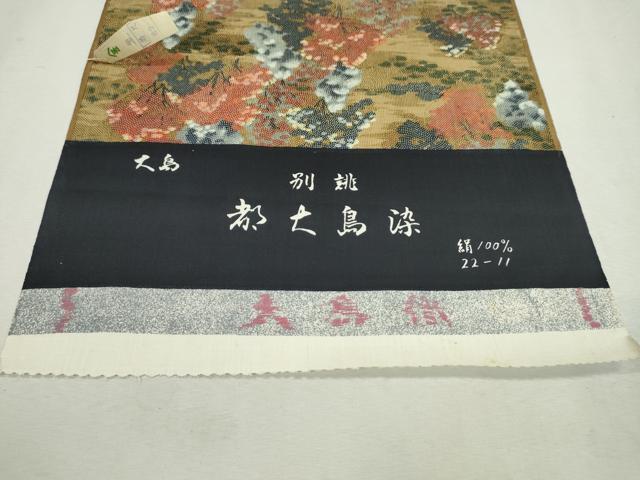 大島
別誂
都大島染
絹100%
22-11
大島織